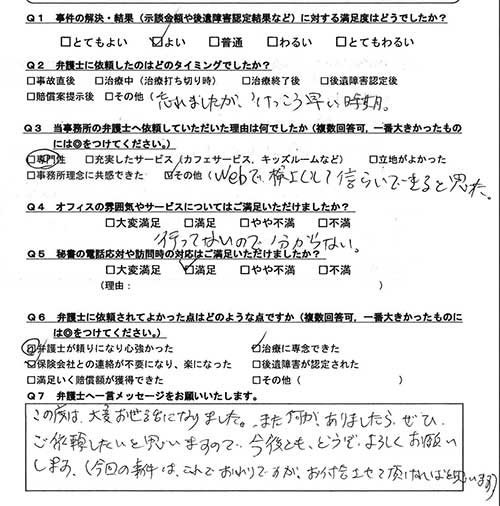 Q1 事件の解決・結果（示談金額や後遺障害認定結果など）に対する満足度はどうでしたか？
□とてもよい ☑よい □普通 □わるい □とてもわるい
Q2 弁護士に依頼したのはどのタイミングでしたか？
□事故直後 □治療中（治療打ち切り時） □治療終了後 □後遺障害認定後
□賠償案提示後 □その他（忘れましたが、けっこう早い時期。
Q3 当事務所の弁護士へ依頼していただいた理由は何でしたか（複数回答可，一番大きかったもの
には◎をつけてください。）
□専門性 □充実したサービス（カフェサービス、キッズルームなど） □立地がよかった
□事務所理念に共感できた ☑その他（Webで、検上して信らいできると思た。
Q4 オフィスの雰囲気やサービスについてはご満足いただけましたか？
□大変満足 □満足 □やや不満 □不満
行ってないので分からない。
Q5 秘書の電話応対や訪問時の対応はご満足いただけましたか？
□大変満足 ☑満足 □やや不満 □不満
（理由： ）
Q6 弁護士に依頼されてよかった点はどのような点ですか（複数回答可，一番大きかったものに
は◎をつけてください。）
☑弁護士が頼りになり心強かった ☑治療に専念できた
□保険会社との連絡が不要になり、楽になった □後遺障害が認定された
□満足いく賠償額が獲得できた □その他（ ）
Q7 弁護士へ一言メッセージをお願いいたします。
この度は、大変お世話になりました。また何か、ありましたら、ぜひ、
ご依頼したいと思いますので、今後とも、どうぞ、よろしくお願い
します、（今回の事件は、これでおわりですが、お付合させて頂ければと思います）